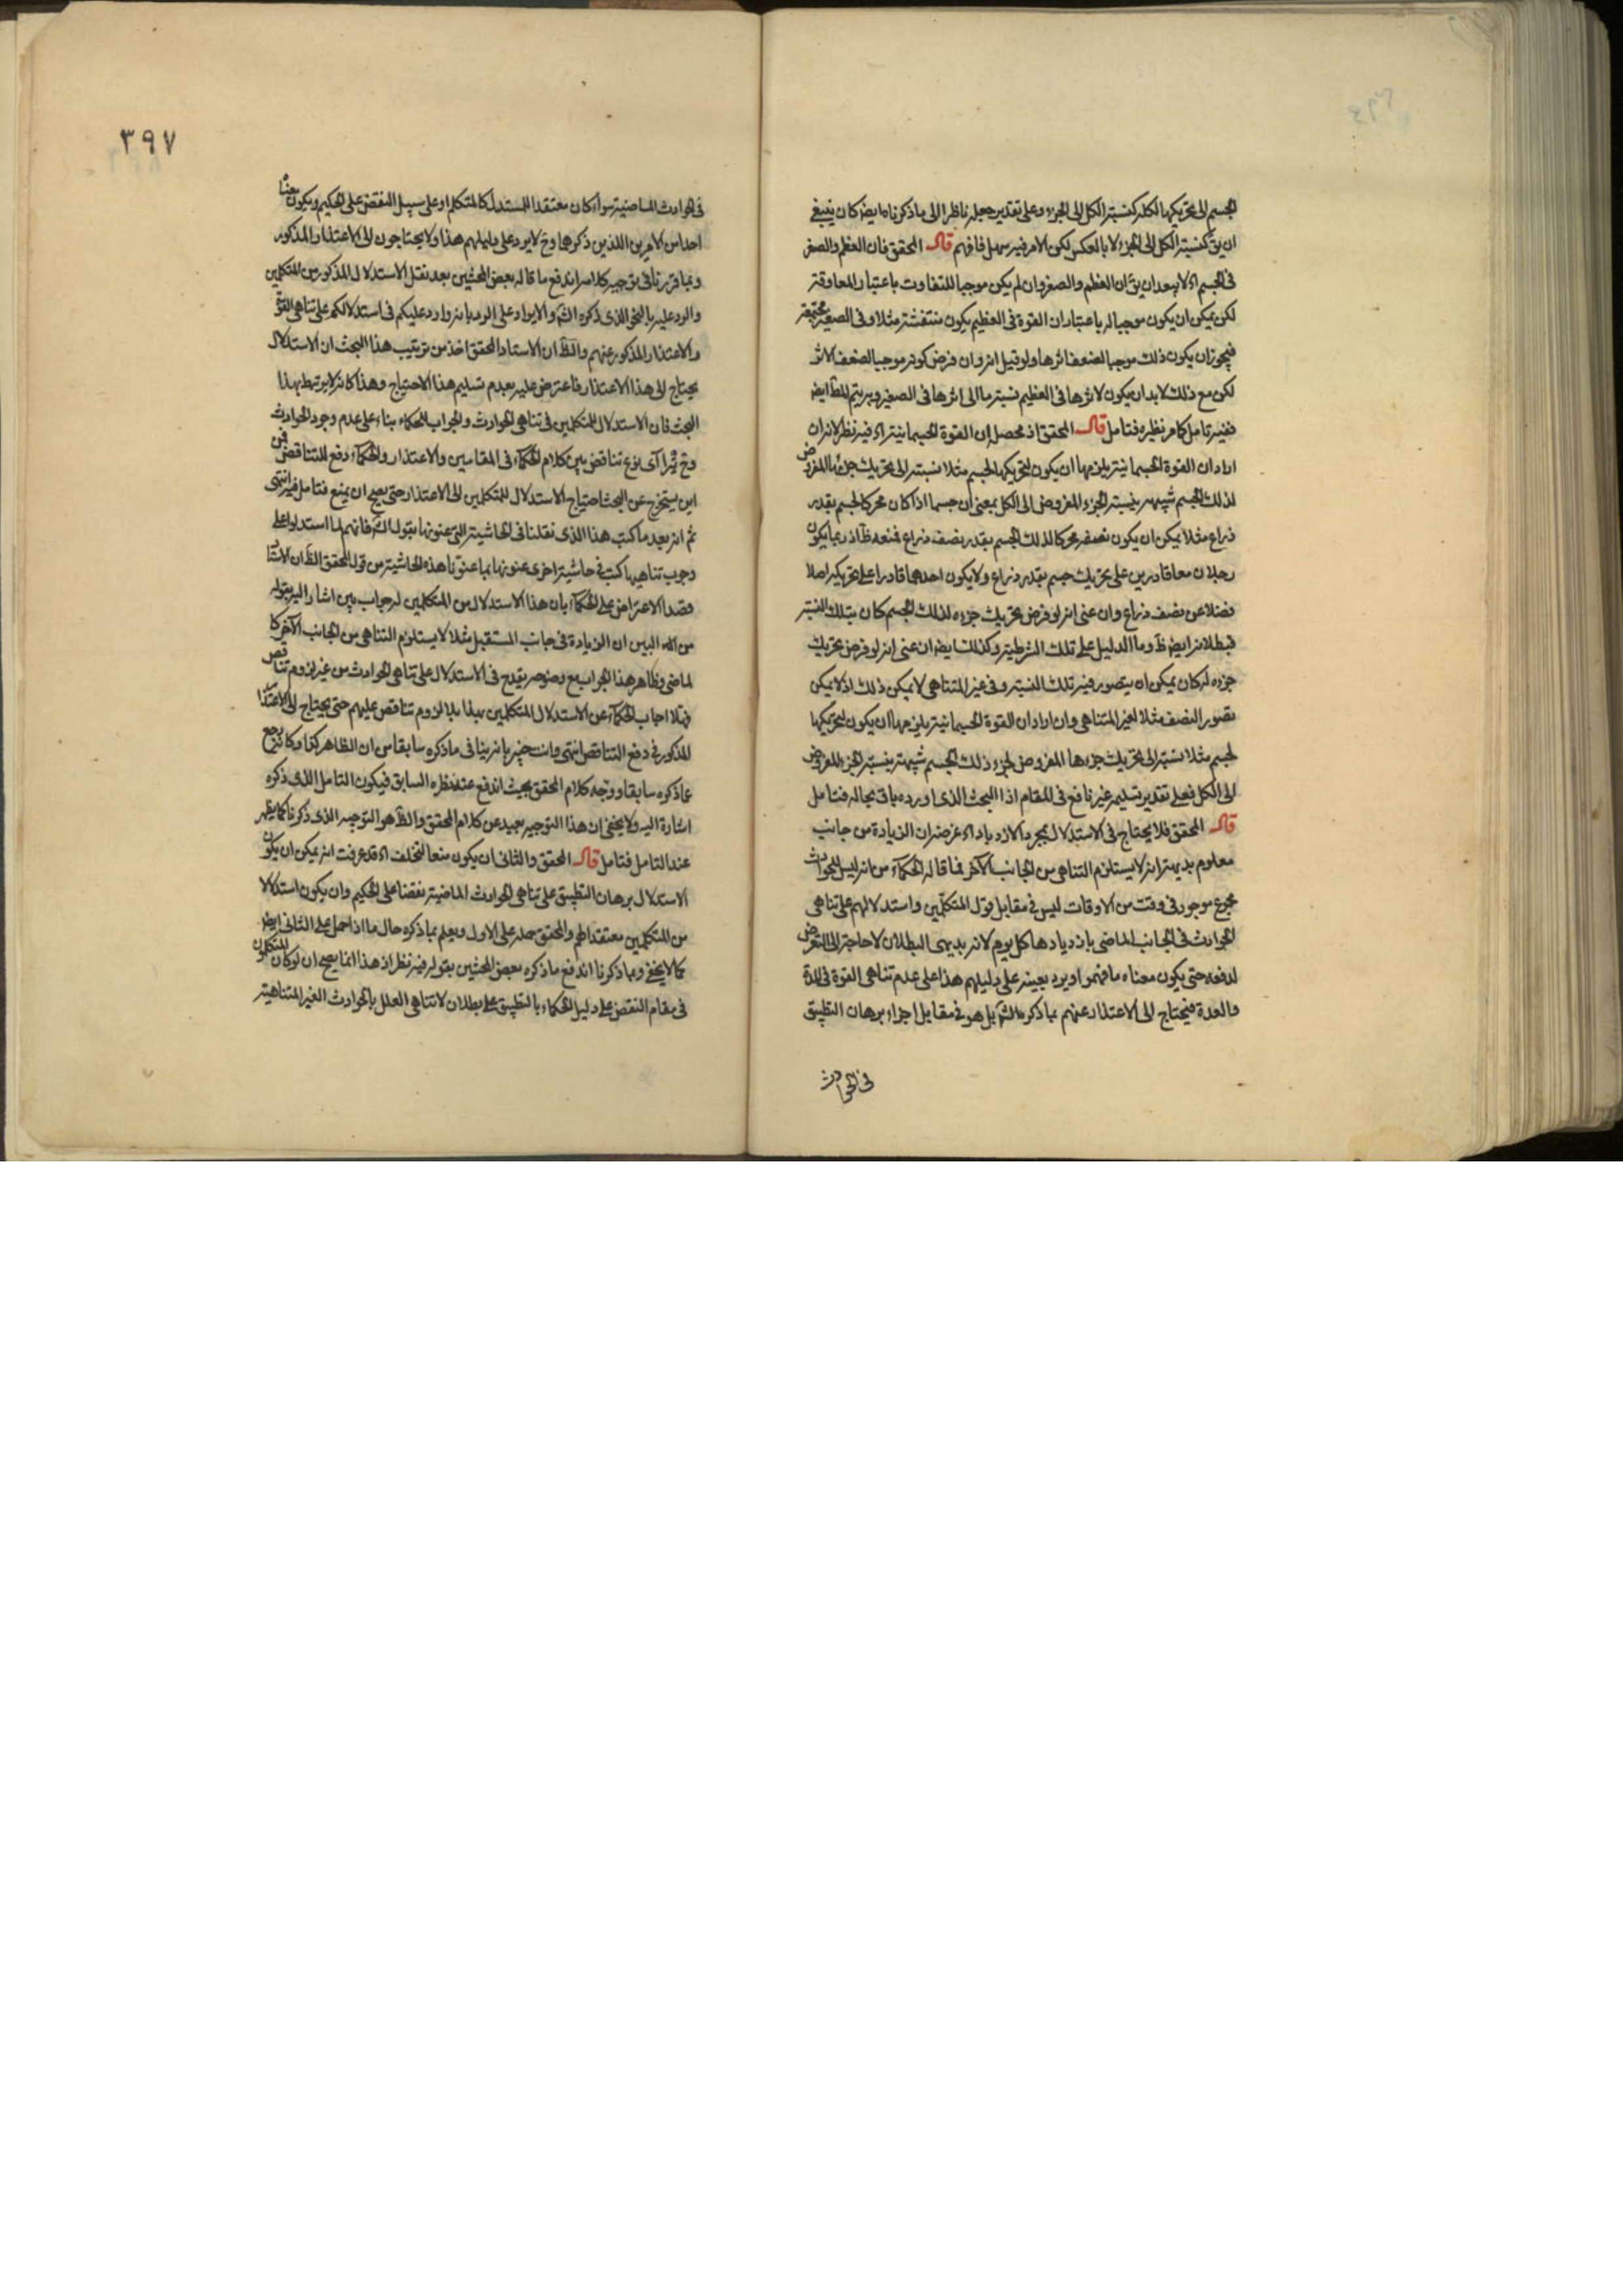 الجسم الى تحريكها لكله كنسبة الكل الى الجزء وعلى تقدير جعله ناظرا الى ما ذكرنا ايضا كان ينبغي
ان يق كنسبة الكل الى الجزء لا بالعكس لكن الامر فيه سهل فافهم قال المحقق فان العظم والصغر
في الجسم اه لا يبعد ان يق ان العظم والصغر وان لم يكن موجبا للتفاوت باعتبار المعاوقة
لكن يمكن ان يكون موجبا له باعتبار ان القوة في العظيم يكون منتفشة مثلا وفي الصغير مجتمعة
فيجوز ان يكون ذلك موجبا لضعف اثرها ولو قيل انه وان فرض كونه موجبا لضعف الاثر
لكن مع ذلك لا بد ان يكون لاثرها في العظيم نسبة ما الى اثرها في الصغير وبه يتم المط ايضا
ففيه تامل كما مر نظيره فتامل قال المحقق اذ محصله ان القوة الجسمانية اه فيه نظر لانه ان
اراد ان القوة الجسمانية يلزمها ان يكون لتحريكها الجسم مثلا نسبة الى تحريك جزئها المفروض
لذلك الجسم شبيهة بنسبة الجزء المفروض الى الكل بمعنى ان جسما اذا كان محركا لجسم بقدر
ذراع مثلا يمكن ان يكون نصفه محركا لذلك الجسم بقدر نصف ذراع فمنعه ظ اذ ربما يكون
رجلان معا قادرين على تحريك جسم بقدر ذراع ولا يكون احدهما قادرا على تحريكه اصلا
فضلا عن نصف ذراع وان عنى انه لو فرض تحريك جزءه لذلك الجسم كان بتلك النسبة
فبطلانه ايضا ظ وما الدليل على تلك الشرطية وكذلك ايضا ان عنى انه لو فرض تحريك
جزءه له كان يمكن ان يتصور فيه تلك النسبة وفي غير المتناهي لا يمكن ذلك اذ لا يمكن
تصور النصف مثلا لغير المتناهي وان اراد ان القوة الجسمانية يلزمها ان يكون لتحريكها
لجسم مثلا نسبة الى تحريك جزءها المفروض لجزء ذلك الجسم شبيهة بنسبة الجزء المفروض
الى الكل فعلى تقدير تسليمه غير نافع في المقام اذ البحث الذي اورده باق بحاله فتامل
قال المحقق فلا يحتاج في الاستدلال بمجرد الازدياد اه غرضه ان الزيادة من جانب
معلوم بديهة انه لا يستلزم التناهي من الجانب الآخر فما قاله الحكماء من انه ليس للحوادث
مجموع موجود في وقت من الاوقات ليس في مقابل قول المتكلمين واستدلالهم على تناهي
الحوادث في الجانب الماضي بازديادها كل يوم لانه بديهي البطلان لا حاجة الى التعرض
لدفعه حتى يكون معناه ما فهموا ويرد بعينه على دليلهم هذا على عدم تناهي القوة في المدة
والعدة فيحتاج الى الاعتذار عنهم بما ذكره الش بل هو في مقابل اجراء برهان التطبيق
في الحوادث
٣٩٧
في الحوادث الماضية سواء كان معتقدا للمستدل كالمتكلم او على سبيل النقض على الحكيم ويكون
احد من الامرين اللذين ذكرها وح لا يرد على دليلهم هذا ولا يحتاجون الى الاعتذار المذكور
وبما قررنا في توجيه كلامه اندفع ما قاله بعض المحشين بعد نقل الاستدلال المذكور من المتكلمين
والرد عليه بالنحو الذي ذكره الش والايراد على الرد بانه وارد عليكم في استدلالكم على تناهي القوة
والاعتذار المذكور عنهم والظ ان الاستاد المحقق اخذ من ترتيب هذا البحث ان الاستدلال
يحتاج الى هذا الاعتذار فاعترض عليه بعدم تسليم هذا الاحتياج وهذا كانه لا يرتبط بهذا
البحث فان الاستدلال للمتكلمين في تناهي الحوادث والجواب للحكماء بناء على عدم وجود الحوادث
وح يترآى نوع تناقض بين كلام الحكماء في المقامين والاعتذار والحكماء دفع للتناقض فمن
اين يستخرج عن البحث احتياج الاستدلال للمتكلمين الى الاعتذار حتى يصح ان يمنع فتامل فيه انتهى
ثم انه بعد ما كتب هذا الذي نقلنا في الحاشية التي عنونها بقول الش فانهم لما استدلوا على
وجوب تناهيها كتب في حاشية اخرى عنونها بما عنونا هذه الحاشية من قول المحقق الظ ان الاستاد
قصد الاعتراض على الحكماء بان هذا الاستدلال من المتكلمين له جواب بين اشار اليه بقوله
من البين ان الزيادة في جانب المستقبل مثلا لا يستلزم التناهي من الجانب الآخر كا
لماضي وظاهر هذا الجواب مع وضوحه يقدح في الاستدلال على تناهي الحوادث من غير لزوم تناقض
فهلا اجاب الحكماء عن الاستدلال المتكلمين بهذا بلا لزوم تناقض عليهم حتى يحتاج الى الاعتذار
المذكور في دفع التناقض انتهى وانت خبير بانه ينافي ما ذكره سابقا من ان الظاهر كذا وكانه رجع
عما ذكره سابقا ووجه كلام المحقق بحيث اندفع عنه نظره السابق فيكون التامل الذي ذكره
اشارة اليه ولا يخفى ان هذا التوجيه بعيد عن كلام المحقق والظ هو التوجيه الذي ذكرنا كما يظهر
عند التامل فتامل قال المحقق والثاني ان يكون منعا لتخلف اه قد عرفت انه يمكن ان يكون
الاستدلال ببرهان التطبيق على تناهي الحوادث الماضية نقضا على الحكيم وان يكون استدلالا
من المتكلمين معتقدا لهم والمحقق حمله على الاول ويعلم بما ذكره حال ما اذا حمل على الثاني ايضا
كما لا يخفى وبما ذكرنا اندفع ما ذكره بعض المحشين بقوله فيه نظر اذ هذا انما يصح ان لو كان المتكلمون
في مقام النقض على دليل الحكماء بالتطبيق على بطلان لا تناهي العلل بالحوادث الغير المتناهية